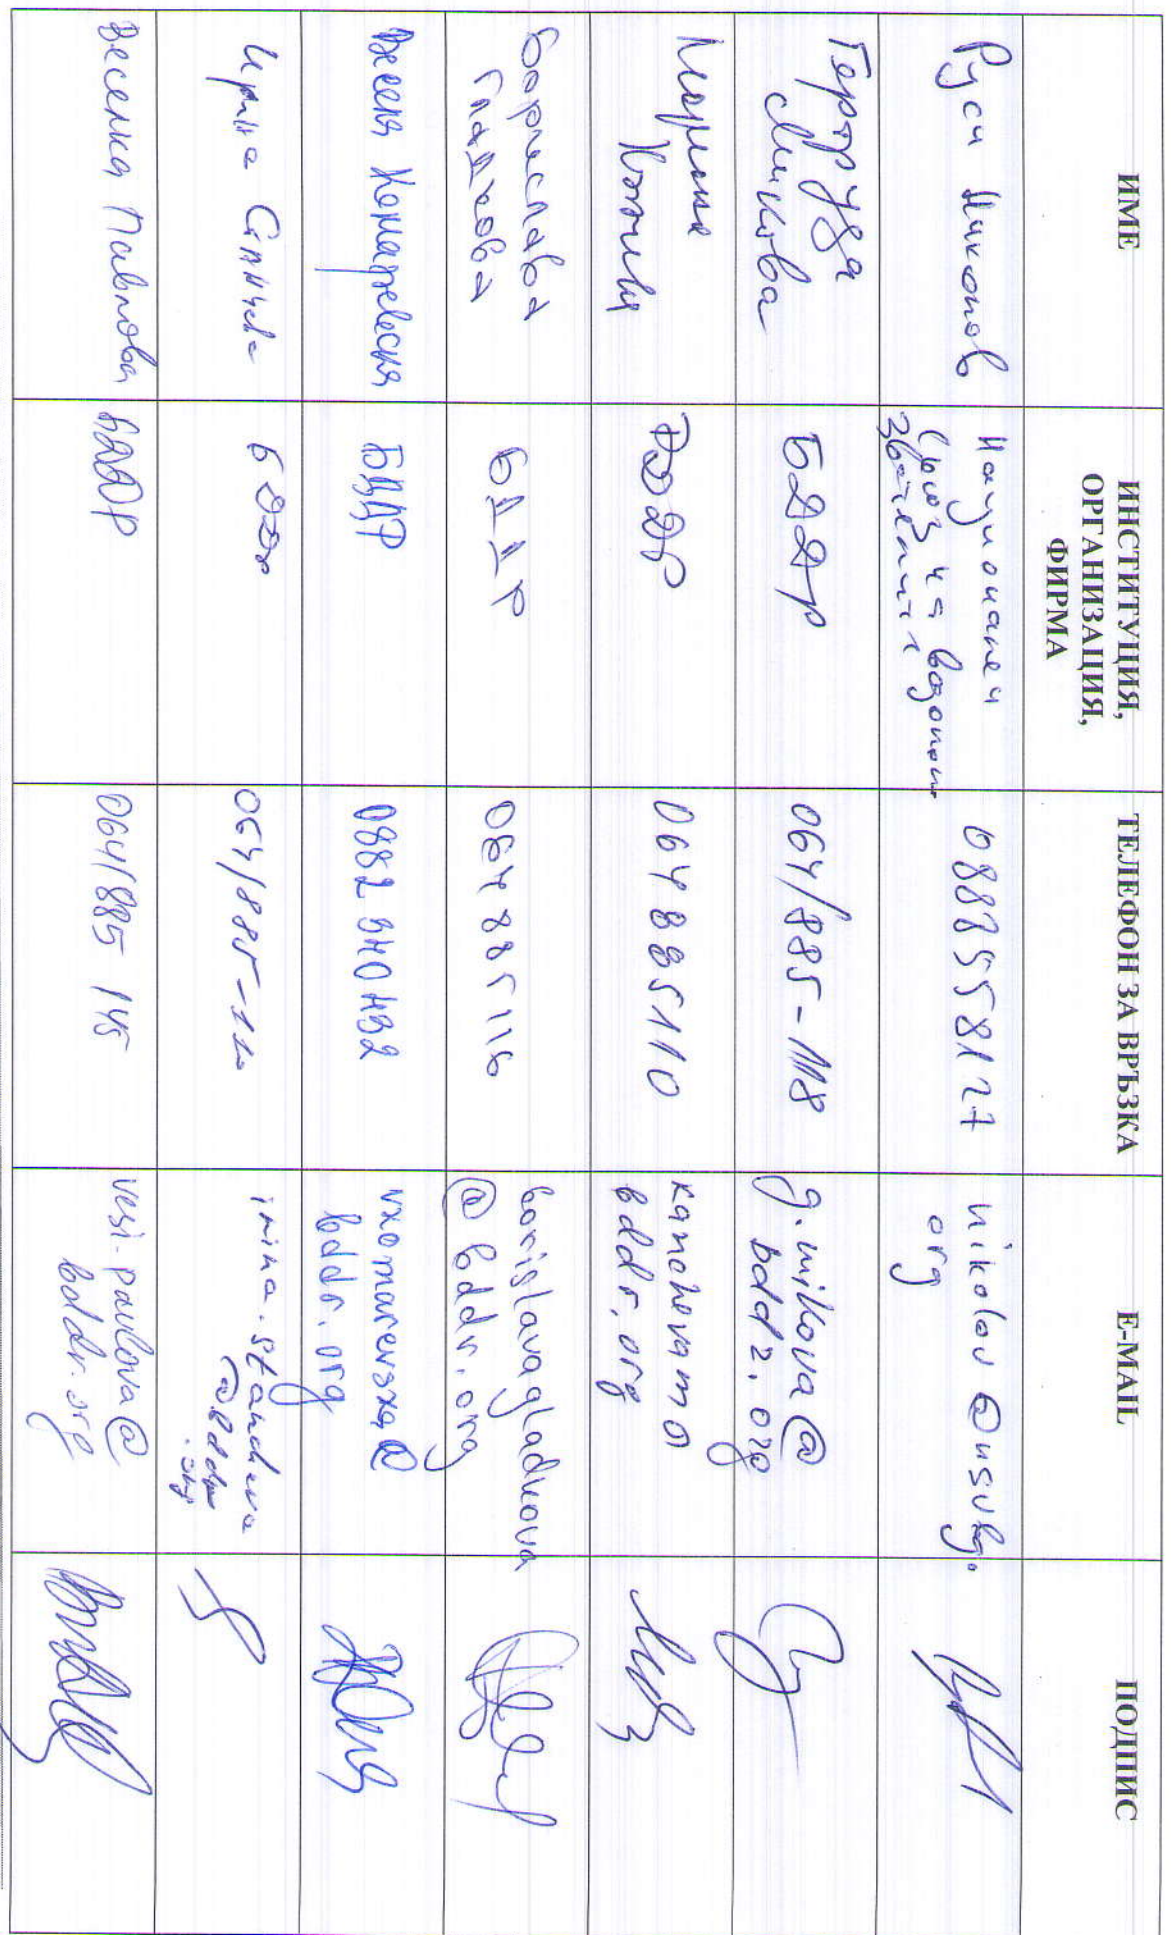 ИМЕ
ИНСТИТУЦИЯ,
ОРГАНИЗАЦИЯ,
ФИРМА
ТЕЛЕФОН ЗА ВРЪЗКА
E-MAIL
ПОДПИС
Руси Николов
Национален
Съюз на
0887558127
nikolov@nsvbg.
org
Гертруда
Микова
БДДР
064/885-118
g.mikova@
bddr.org
БДДР
064 885110
kanchevam@
bddr.org
Борислава
Гладкова
БДДР
064 885116
borislavagladkova
@bddr.org
Комаревска
БДДР
0882 940492
vkomarevska@
bddr.org
Ирина Станчева
БДДР
064/885-
irina.stancheva
@bddr
.org
Веселка Павлова
БДДР
064/885 145
vesi.pavlova@
bddr.org